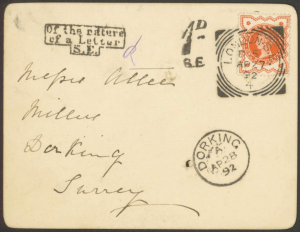 Of the nature
of a Letter
S.E.
1D.
S.E.
LONDON
AP 27
92
4
Messrs
Millers
Dorking
Surrey
DORKING
A
AP 28
92